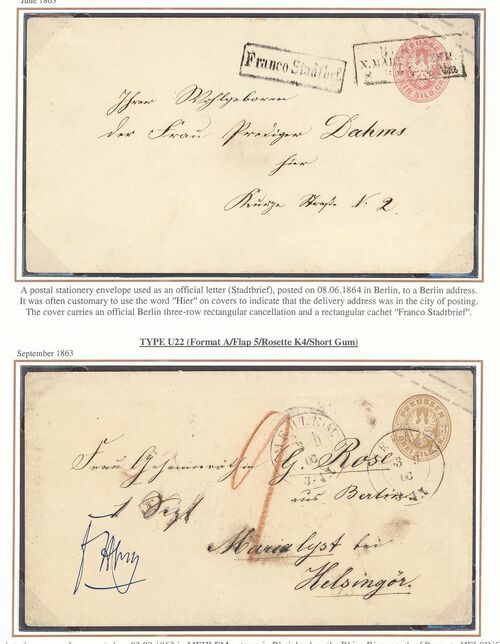 June 1863
Franco Stadtbrf
PREUSSEN
EIN SILB.GR.
Ihrer Wohlgeboren
der Frau Prediger Dahms
hier
Kurze Straße N. 2.
A postal stationery envelope used as an official letter (Stadtbrief), posted on 08.06.1864 in Berlin, to a Berlin address.
It was often customary to use the word "Hier" on covers to indicate that the delivery address was in the city of posting.
The cover carries an official Berlin three-row rectangular cancellation and a rectangular cachet "Franco Stadtbrief".
TYPE U22 (Format A/Flap 5/Rosette K4/Short Gum)
September 1863
MEHLEM
PREUSSEN
DREI SILB.GR.
Frau Geheimeräthin G. Rose
aus Berlin
1 Sept
Marialyst bei
Helsingör.